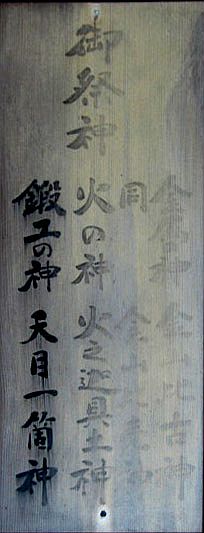 御祭神
金属の神 金山比古神
同
火の神 火之迦具土神
鍛工の神 天目一箇神